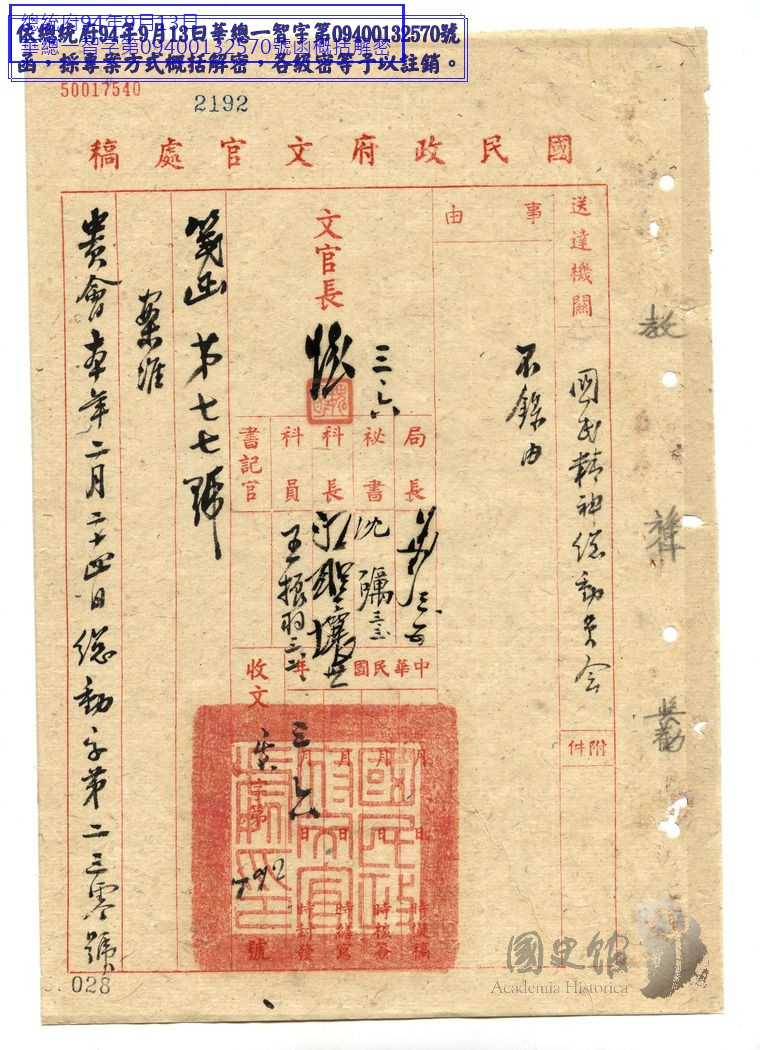 總統府94年9月13日
華總一智字第09400132570號函概括解密
依總統府94年9月13日華總一智字第09400132570號
函,採專案方式概括解密,各級密等予以註銷。
50017540
2192
國民政府文官處稿
送達機關
國民精神總動員会
附件
事由
不錄由
文官長
三.六
局長
秘書
沈礪
科長
科員
王振羽
書記官
中華民國 年
月 日 時擬稿
月 日 時核簽
月 日 時繕寫
月 日 時封發
三 六
收文 字第 792 號
箋函 第七七號
案准
貴會本年二月二十四日總動字第二三零號
028
國史館
Academia Historica
教
獎勸